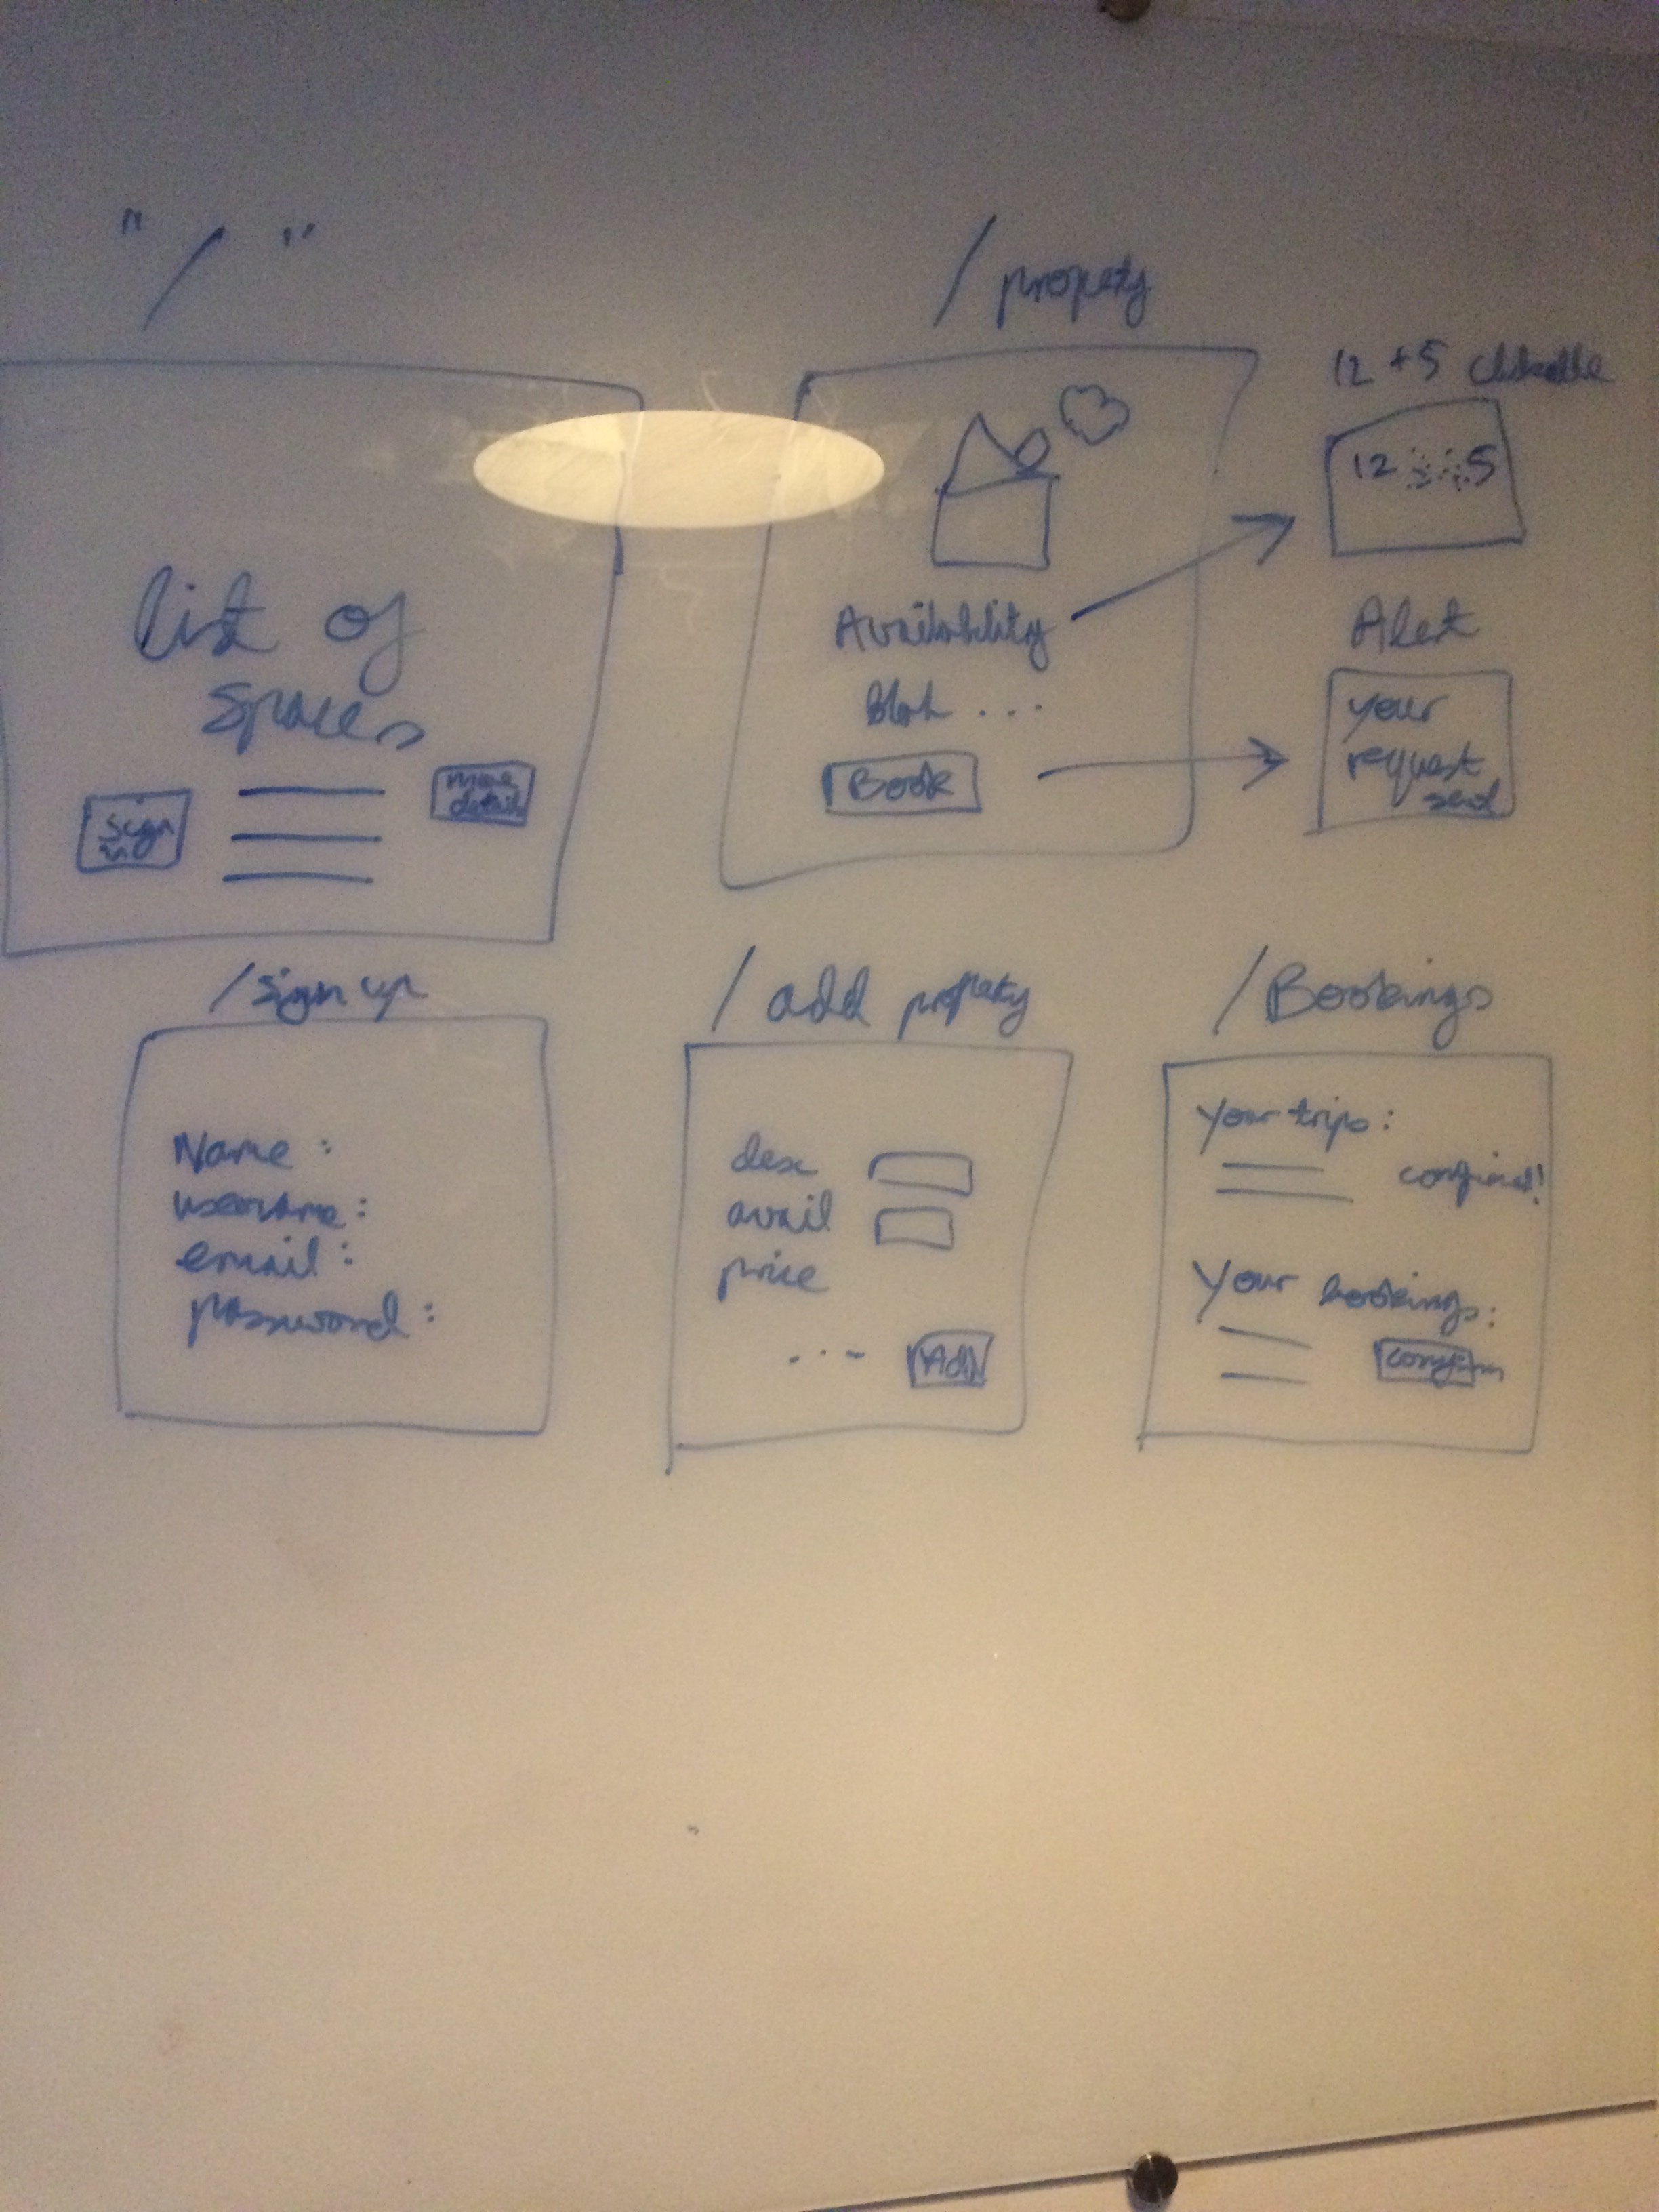 "/"
List of
Spaces
Sign
in
more
details
/ property
Availability
Blah ...
Book
12 + 5 clickable
12 5
Alert
your
request
sent
/sign up
Name :
username :
email :
password :
/ add property
desc
avail
price
... Add
/Bookings
Your trips :
confirmed!
Your bookings :
confirm